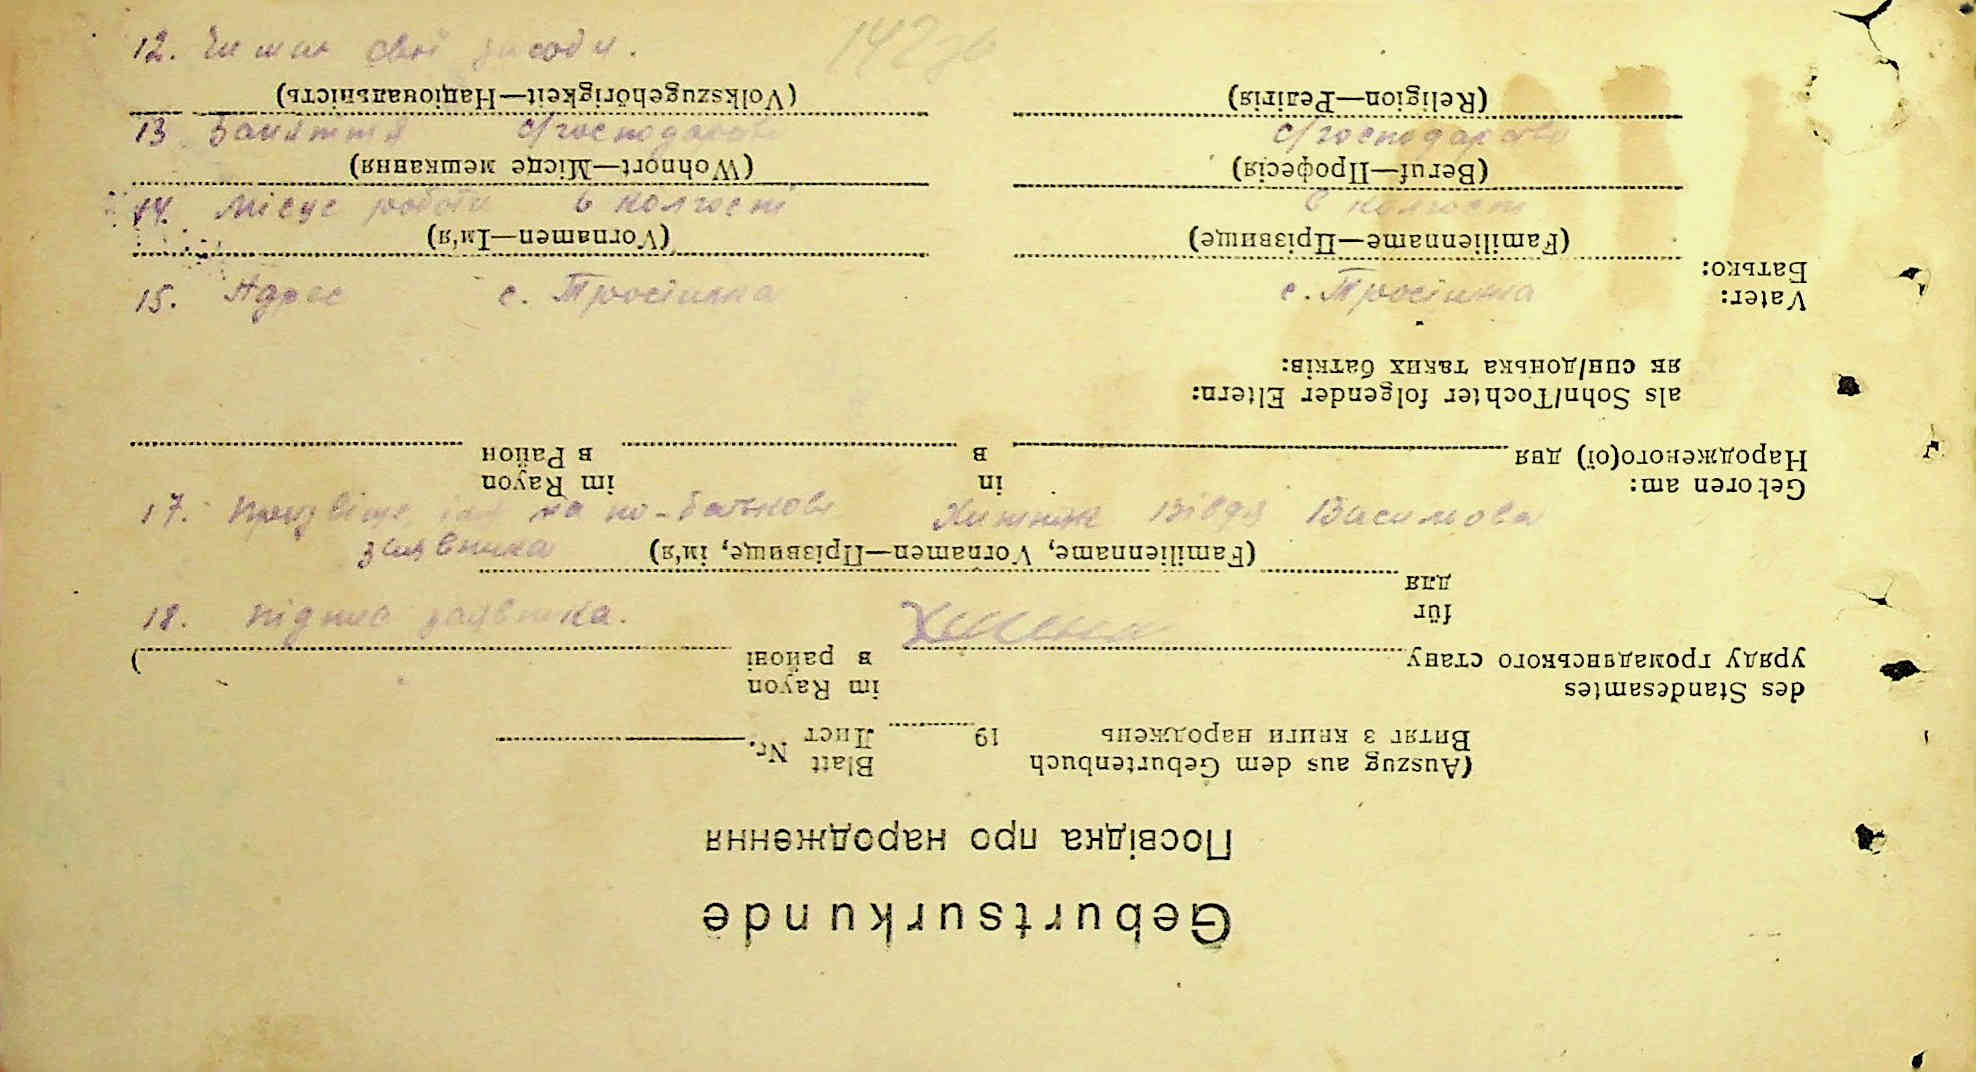 142зв
12. Чи має свої
13. Заняття с/господарство с/господарство
14. Місце роботи в колгоспі в колгоспі
15. Адрес с. с.
17. Призвіще, імя та по-батькові
заявника
18. Підпис заявника.
Geburtsurkunde
Посвідка про народження
(Auszug aus dem Geburtenbuch Blatt Nr.
Витяг з книги народжень 19 Лист
des Standesamtes im Rayon
уряду громадянського стану в районі )
für
для
(Familienname, Vornamen—Прізвище, ім'я)
Geboren am: in im Rayon
Народженого(ої) дня в в Район
als Sohn/Tochter folgender Eltern:
як син/донька таких батків:
Vater:
Батько:
(Familienname—Прізвище) (Vornamen—Ім'я)
(Beruf—Професія) (Wohnort—Місце мешкання)
(Religion—Релігія) (Volkszugehörigkeit—Національність)